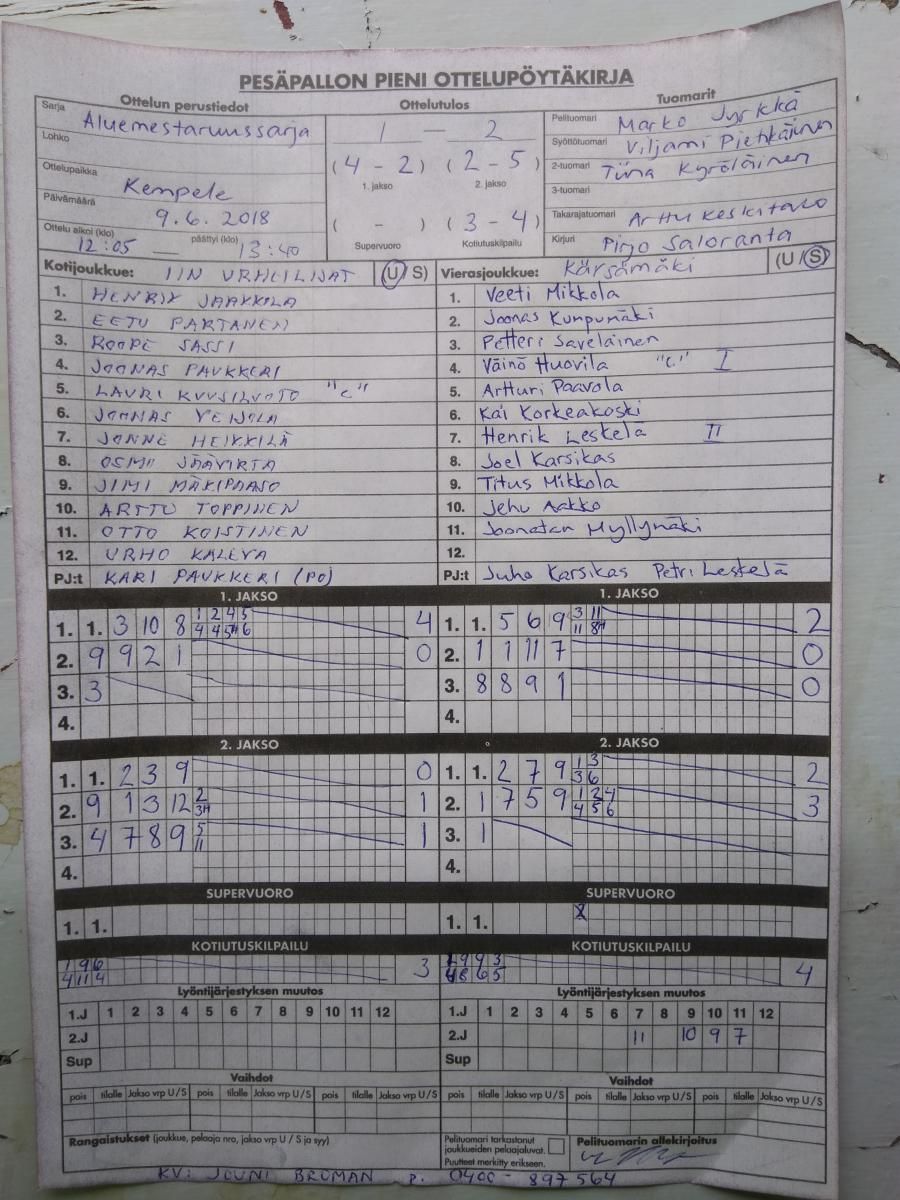 PESÄPALLON PIENI OTTELUPÖYTÄKIRJA
Ottelun perustiedot Ottelutulos Tuomarit
Sarja Aluemestaruussarja
Lohko
Ottelupaikka Kempele
Päivämäärä 9.6.2018
Ottelu alkoi (klo) 12:05 — päättyi (klo) 13:40
1 — 2
(4 - 2) (2 - 5)
1. jakso 2. jakso
( - ) (3 - 4)
Supervuoro Kotiutuskilpailu
Pelituomari Marko Jyrkkä
Syöttötuomari Viljami Pietikäinen
2-tuomari Tiina Kyröläinen
3-tuomari
Takarajatuomari Arttu Keskitalo
Kirjuri Pirjo Saloranta
Kotijoukkue: IIN URHEILIJAT (U/S)
1. HENRIK JAAKKOLA
2. EETU PARTANEN
3. ROOPE SASSI
4. JOONAS PAUKKERI
5. LAURI KUUSILUOTO "C"
6. JOONAS VEIJOLA
7. JONNE HEIKKILÄ
8. OSMII JÄÄVIRTA
9. JIMI MÄKIPAASO
10. ARTTU TOPPINEN
11. OTTO KOISTINEN
12. URHO KALEVA
PJ:t KARI PAUKKERI (PO)
Vierasjoukkue: Kärsämäki (U/S)
1. Veeti Mikkola
2. Joonas Kumpumäki
3. Petteri Saveläinen
4. Väinö Huovila "C" I
5. Artturi Paavola
6. Kai Korkeakoski
7. Henrik Leskelä II
8. Joel Karsikas
9. Titus Mikkola
10. Jehu Aakko
11. Joonatan Myllymäki
12.
PJ:t Juho Karsikas Petri Leskelä
1. JAKSO 1. JAKSO
1. 1. 3 10 8 1 2 4 5 4
4 4 5H 6
2. 9 9 2 1 0
3. 3
4.
1. 1. 5 6 9 3 11 2
11 8H
2. 1 1 11 7 0
3. 8 8 9 1 0
4.
2. JAKSO 2. JAKSO
1. 1. 2 3 9 0
2. 9 1 3 12 2 1
3H
3. 4 7 8 9 5 1
11
4.
1. 1. 2 7 9 1 3 2
3 6
2. 1 7 5 9 1 2 4 3
4 5 6
3. 1
4.
SUPERVUORO SUPERVUORO
1. 1. 1. 1.
KOTIUTUSKILPAILU KOTIUTUSKILPAILU
1 9 6 3
4 11 4
1 9 9 3 4
4 8 6 5
Lyöntijärjestyksen muutos Lyöntijärjestyksen muutos
1.J 1 2 3 4 5 6 7 8 9 10 11 12
2.J
Sup
1.J 1 2 3 4 5 6 7 8 9 10 11 12
2.J 11 10 9 7
Sup
Vaihdot Vaihdot
pois tilalle Jakso vrp U/S pois tilalle Jakso vrp U/S pois tilalle Jakso vrp U/S
pois tilalle Jakso vrp U/S pois tilalle Jakso vrp U/S pois tilalle Jakso vrp U/S
Rangaistukset (joukkue, pelaaja nro, jakso vrp U / S ja syy)
Pelituomari tarkastanut
joukkueiden pelaajaluvat.
Puutteet merkitty erikseen.
Pelituomarin allekirjoitus
KV: JOUNI BROMAN p. 0400-897564